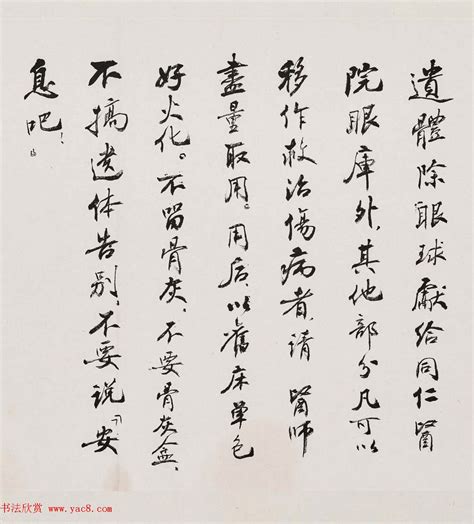 遺體除眼球獻給同仁醫
院眼庫外，其他部分凡可以
移作救治傷病者，請 醫師
盡量取用。用后，以舊床單包
好火化。不留骨灰，不要骨灰盒、
不搞遗体告别，不要说「安
息吧」。
书法欣赏 www.yac8.com